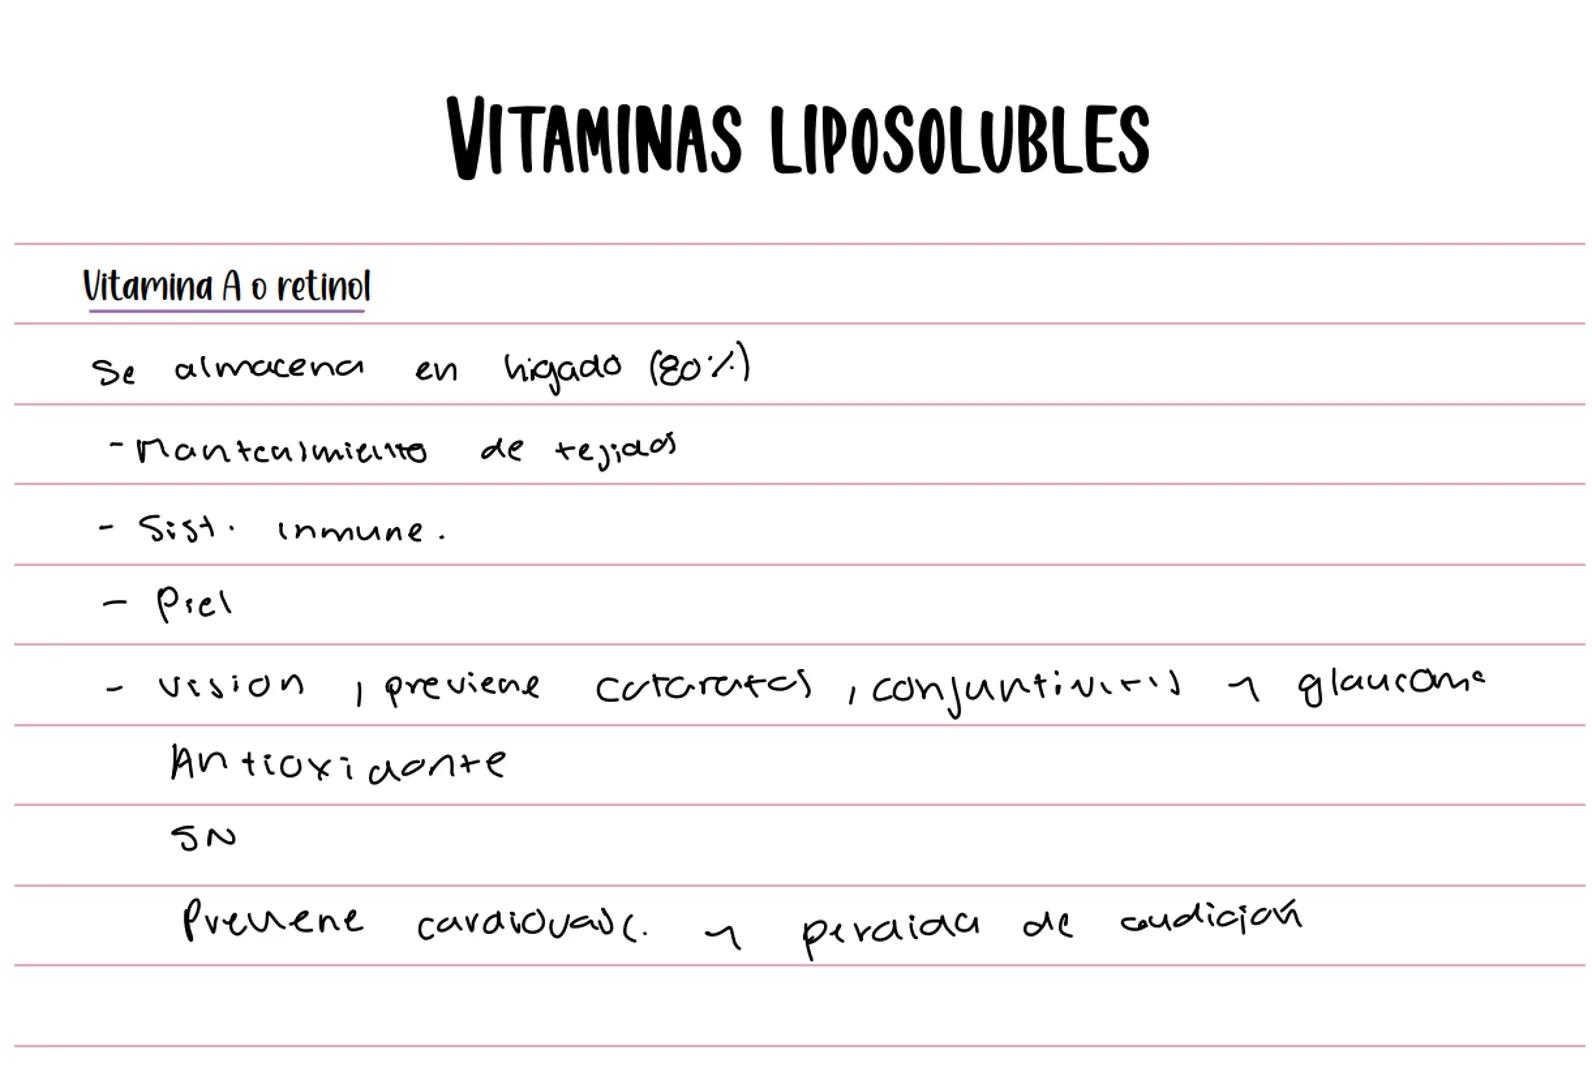 VITAMINAS LIPOSOLUBLES
Vitamina A o retinol
Se almacena en higado (80%)
- Mantenimiento de tejidos
- Sist. inmune.
- Piel
- vision, previene cataratas, conjuntivitis y glaucoma
Antioxidante
SN
Previene cardiovasc. y perdida de audición